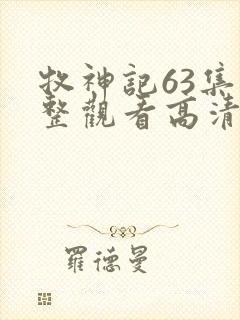 牧神記63集
整觀看高清
羅德曼